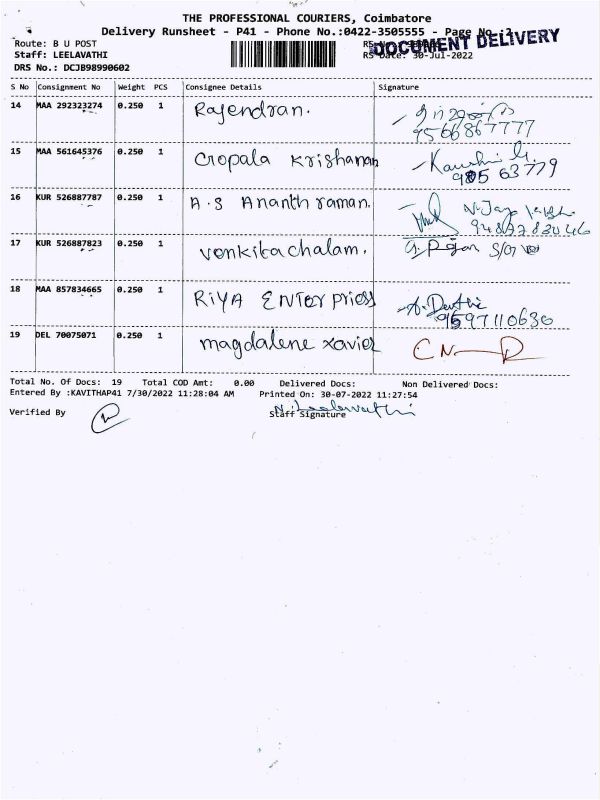 THE PROFESSIONAL COURIERS, Coimbatore
Delivery Runsheet - P41 - Phone No.:0422-3505555 - Page No.:2
DOCUMENT DELIVERY
Route: B U POST
Staff: LEELAVATHI
RS Date: 30-Jul-2022
DRS No.: DCJB98990602
S No Consignment No Weight PCS Consignee Details Signature
14 MAA 292323274 0.250 1 Rajendran.
9566867777
15 MAA 561645376 0.250 1 Cropala Krishanan
985 63779
16 KUR 526887787 0.250 1 A.S Ananth raman.
17 KUR 526887823 0.250 1 venkitachalam.
18 MAA 857834665 0.250 1 RiYA Enterpriess
9597110630
19 DEL 70075071 0.250 1 magdalene xavier
Total No. Of Docs: 19 Total COD Amt: 0.00 Delivered Docs: Non Delivered Docs:
Entered By :KAVITHAP41 7/30/2022 11:28:04 AM Printed On: 30-07-2022 11:27:54
Verified By Staff Signature N. Leelavathi